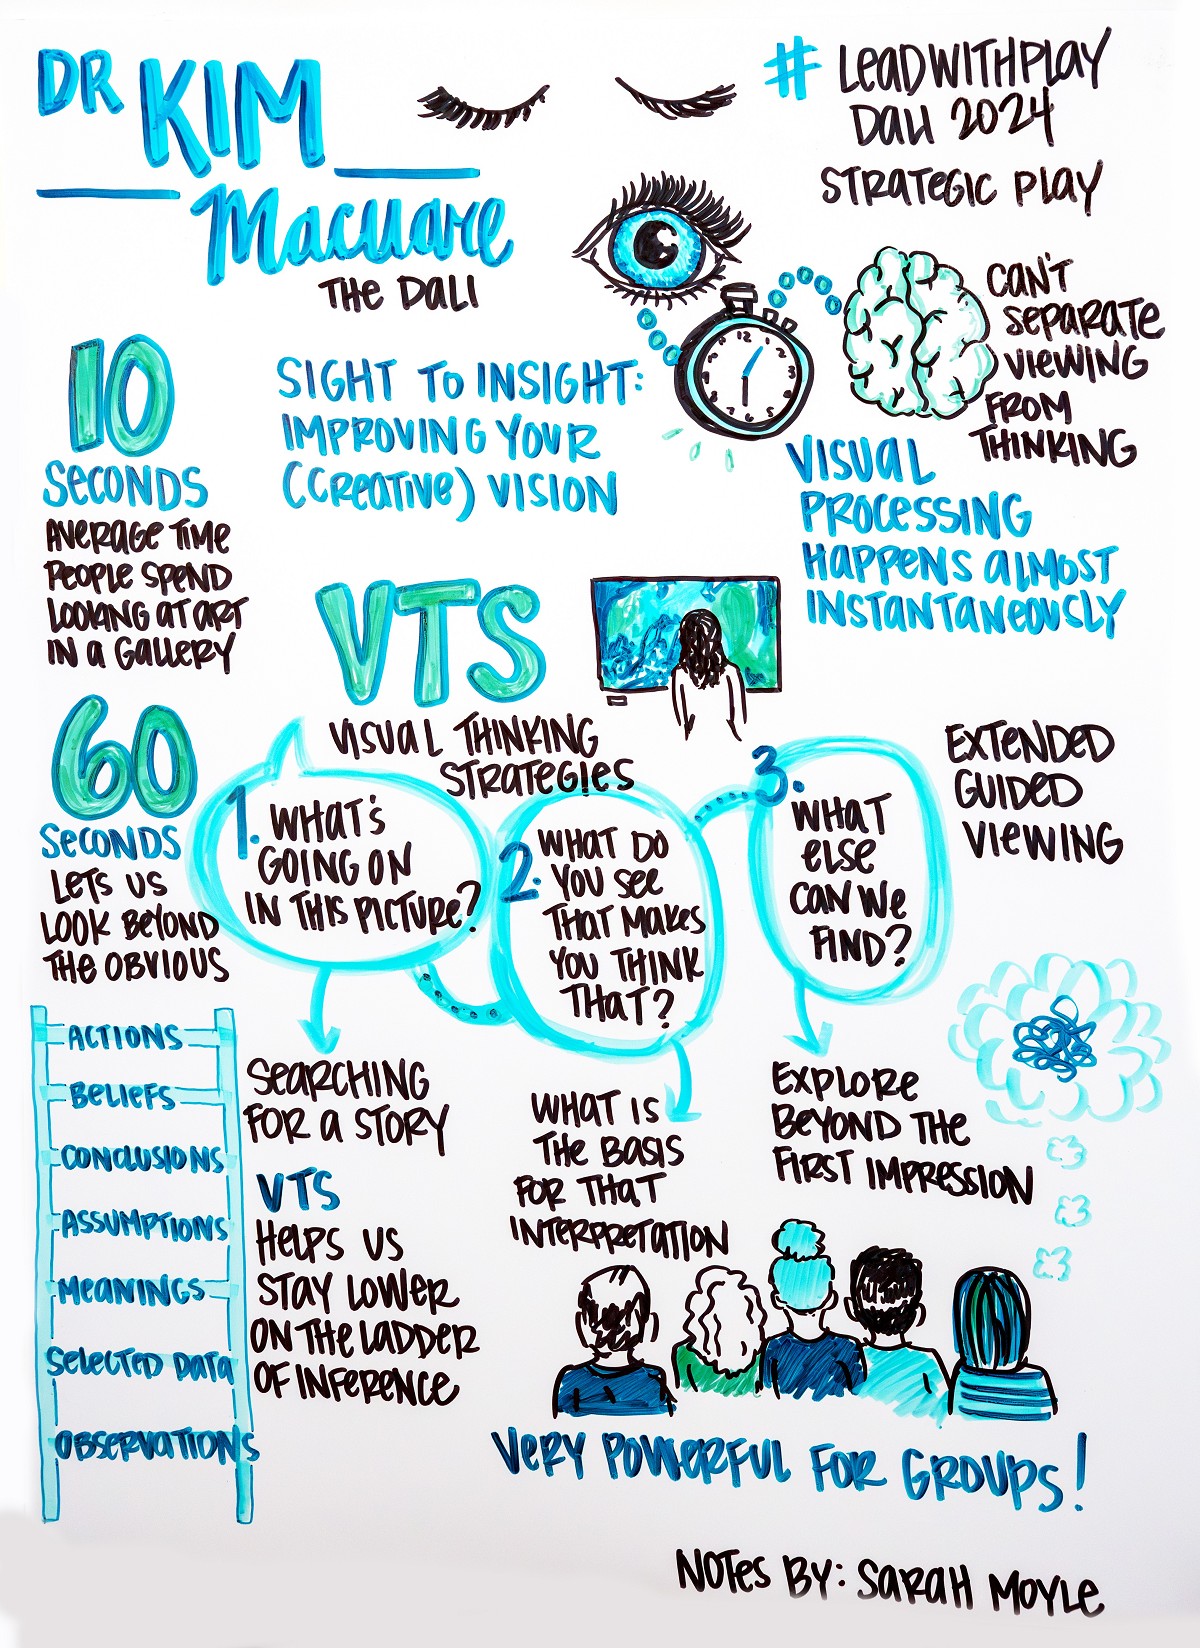 DR KIM
Macuare
THE DALI
# LEADWITHPLAY
DALI 2024
STRATEGIC PLAY
CAN'T
SEPARATE
VIEWING
FROM
THINKING
10
SECONDS
AVERAGE TIME
PEOPLE SPEND
LOOKING AT ART
IN A GALLERY
SIGHT TO INSIGHT:
IMPROVING YOUR
(CREATIVE) VISION
VISUAL
PROCESSING
HAPPENS ALMOST
INSTANTANEOUSLY
60
SECONDS
LETS US
LOOK BEYOND
THE OBVIOUS
VTS
VISUAL THINKING
STRATEGIES
1. WHAT'S
GOING ON
IN THIS PICTURE?
2. WHAT DO
YOU SEE
THAT MAKES
YOU THINK
THAT?
3. WHAT
ELSE
CAN WE
FIND?
EXTENDED
GUIDED
VIEWING
SEARCHING
FOR A STORY
WHAT IS
THE BASIS
FOR THAT
INTERPRETATION
EXPLORE
BEYOND THE
FIRST IMPRESSION
ACTIONS
BELIEFS
CONCLUSIONS
ASSUMPTIONS
MEANINGS
SELECTED DATA
OBSERVATIONS
VTS
HELPS US
STAY LOWER
ON THE LADDER
OF INFERENCE
VERY POWERFUL FOR GROUPS!
NOTES BY: SARAH MOYLE